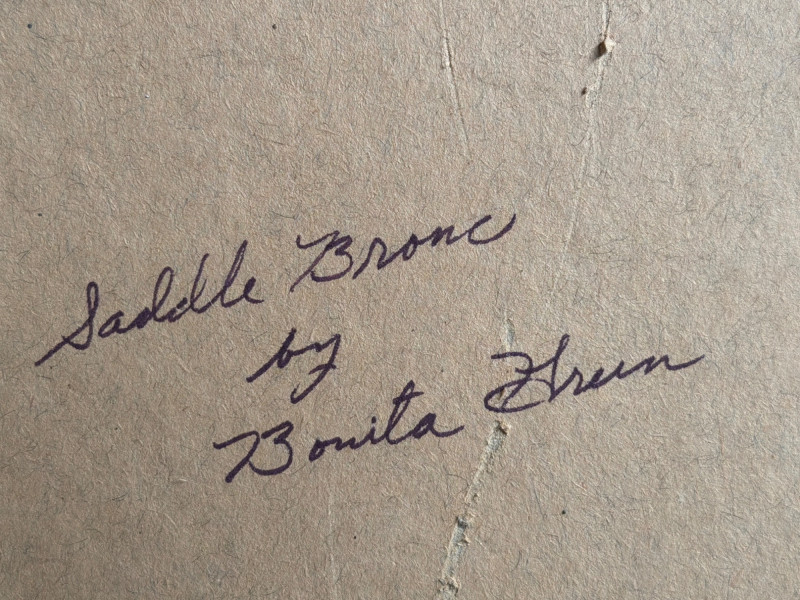 Saddle Bronc
by
Bonita Green